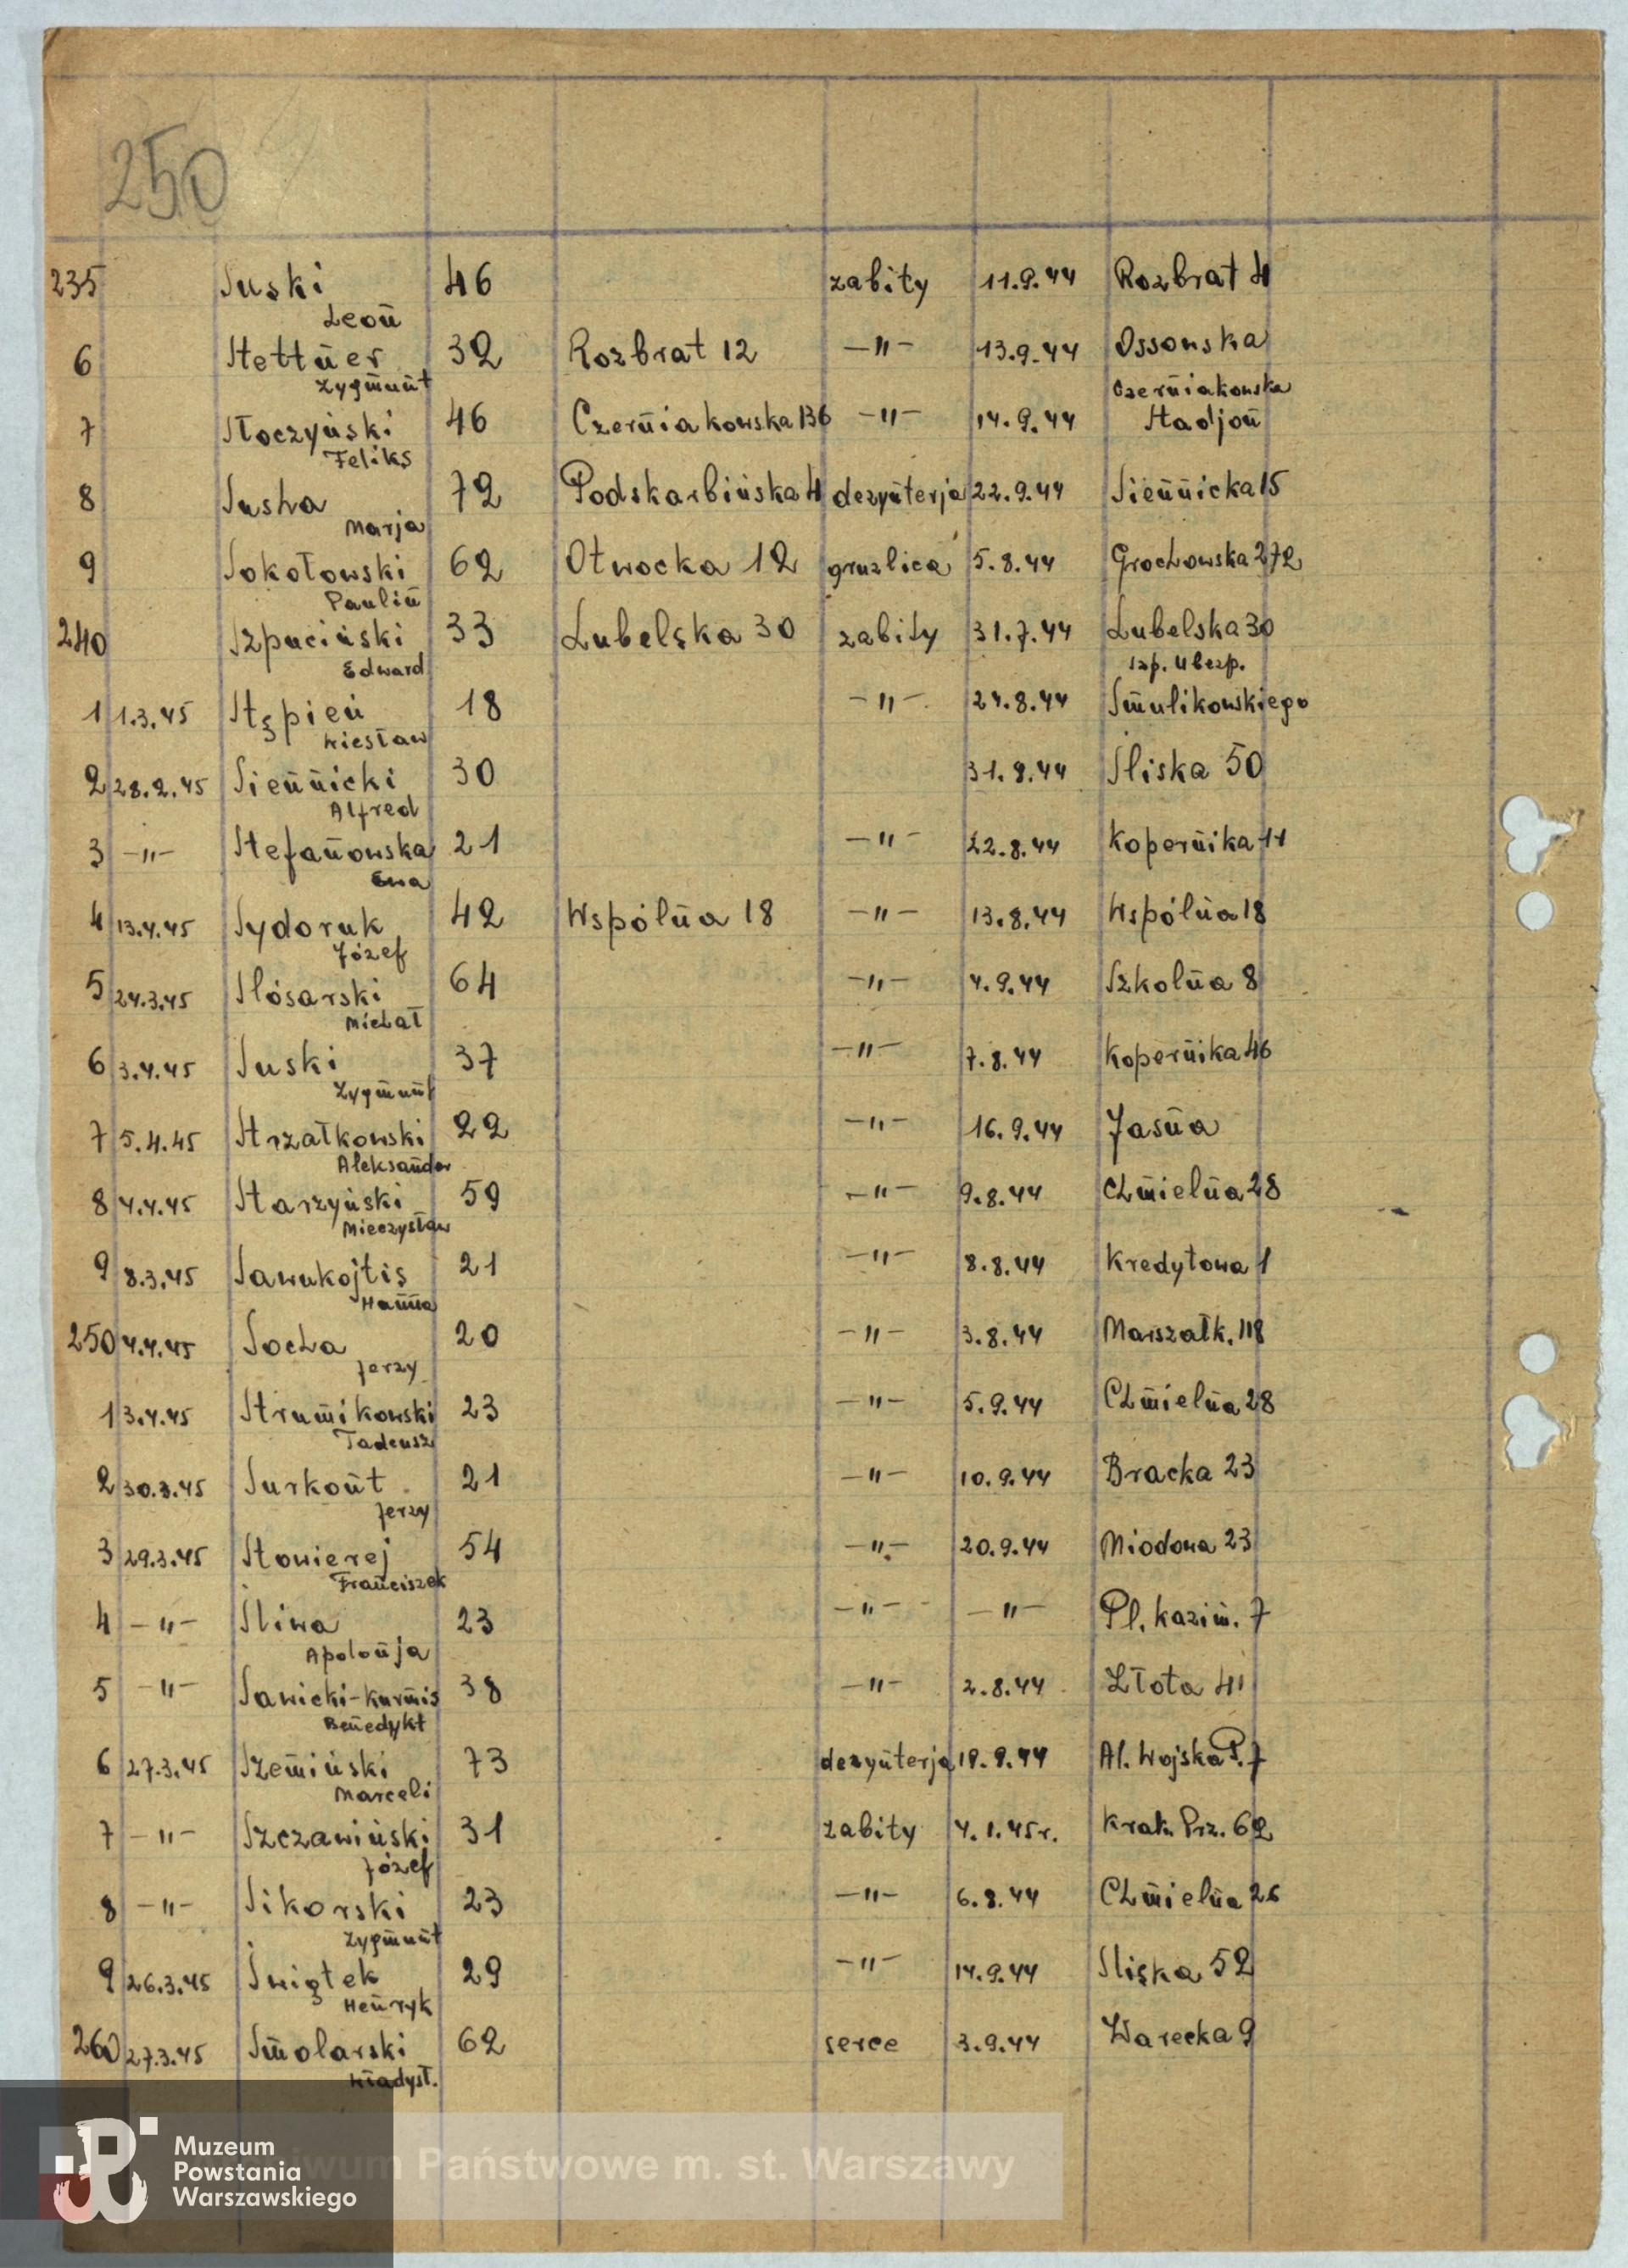 250
235 Suski 46 zabity 11.9.44 Rozbrat 4
Leon
6 Stettner 32 Rozbrat 12 —"— 13.9.44 Ossowska
Zygmunt Czerniakowska
7 Stoczyński 46 Czerniakowska 136 —"— 14.9.44 Stadjon
Feliks
8 Susha 72 Podskarbińska 4 dezynterja 22.9.44 Siennicka 15
Marja
9 Sokołowski 62 Otwocka 12 gruzlica 5.8.44 Grochowska 272
Paulin
240 Szpuciński 33 Lubelska 30 zabity 31.7.44 Lubelska 30
Edward szp. Ubezp.
1 1.3.45 Stępień 18 —"— 24.8.44 Smulikowskiego
Wiesław
2 28.2.45 Siennicki 30 31.8.44 Sliska 50
Alfred
3 —"— Stefanowska 21 —"— 22.8.44 Kopernika 11
Ewa
4 13.4.45 Sydoruk 42 Wspólna 18 —"— 13.8.44 Wspólna 18
Józef
5 24.3.45 Slósarski 64 —"— 4.9.44 Szkolna 8
Michał
6 3.4.45 Suski 37 —"— 7.8.44 Kopernika 46
Zygmunt
7 5.4.45 Strzałkowski 22 —"— 16.9.44 Jasna
Aleksander
8 4.4.45 Starzyński 59 —"— 9.8.44 Chmielna 28
Mieczysław
9 8.3.45 Sawukojtis 21 —"— 8.8.44 Kredytowa 1
Hanna
250 4.4.45 Socha 20 —"— 3.8.44 Marszałk. 118
Jerzy
1 3.4.45 Strumikowski 23 —"— 5.9.44 Chmielna 28
Tadeusz
2 30.3.45 Surkont 21 —"— 10.9.44 Bracka 23
Jerzy
3 29.3.45 Stowierej 54 —"— 20.9.44 Miodowa 23
Franciszek
4 —"— Śliwa 23 —"— —"— Pl. Kazim. 7
Apolonja
5 —"— Sawicki-Kurmis 38 —"— 2.8.44 Złota 41
Benedykt
6 27.3.45 Szemiński 73 dezynterja 19.9.44 Al. Wojska P. 7
Marceli
7 —"— Szczawiński 31 zabity 4.1.45r. Krak. Prz. 62
Józef
8 —"— Sikorski 23 —"— 6.8.44 Chmielna 26
Zygmunt
9 26.3.45 Świątek 29 —"— 14.9.44 Sliska 52
Henryk
260 27.3.45 Smolarski 62 serce 3.9.44 Warecka 9
Władysł.
Muzeum
Powstania
Warszawskiego
wum Państwowe m. st. Warszawy